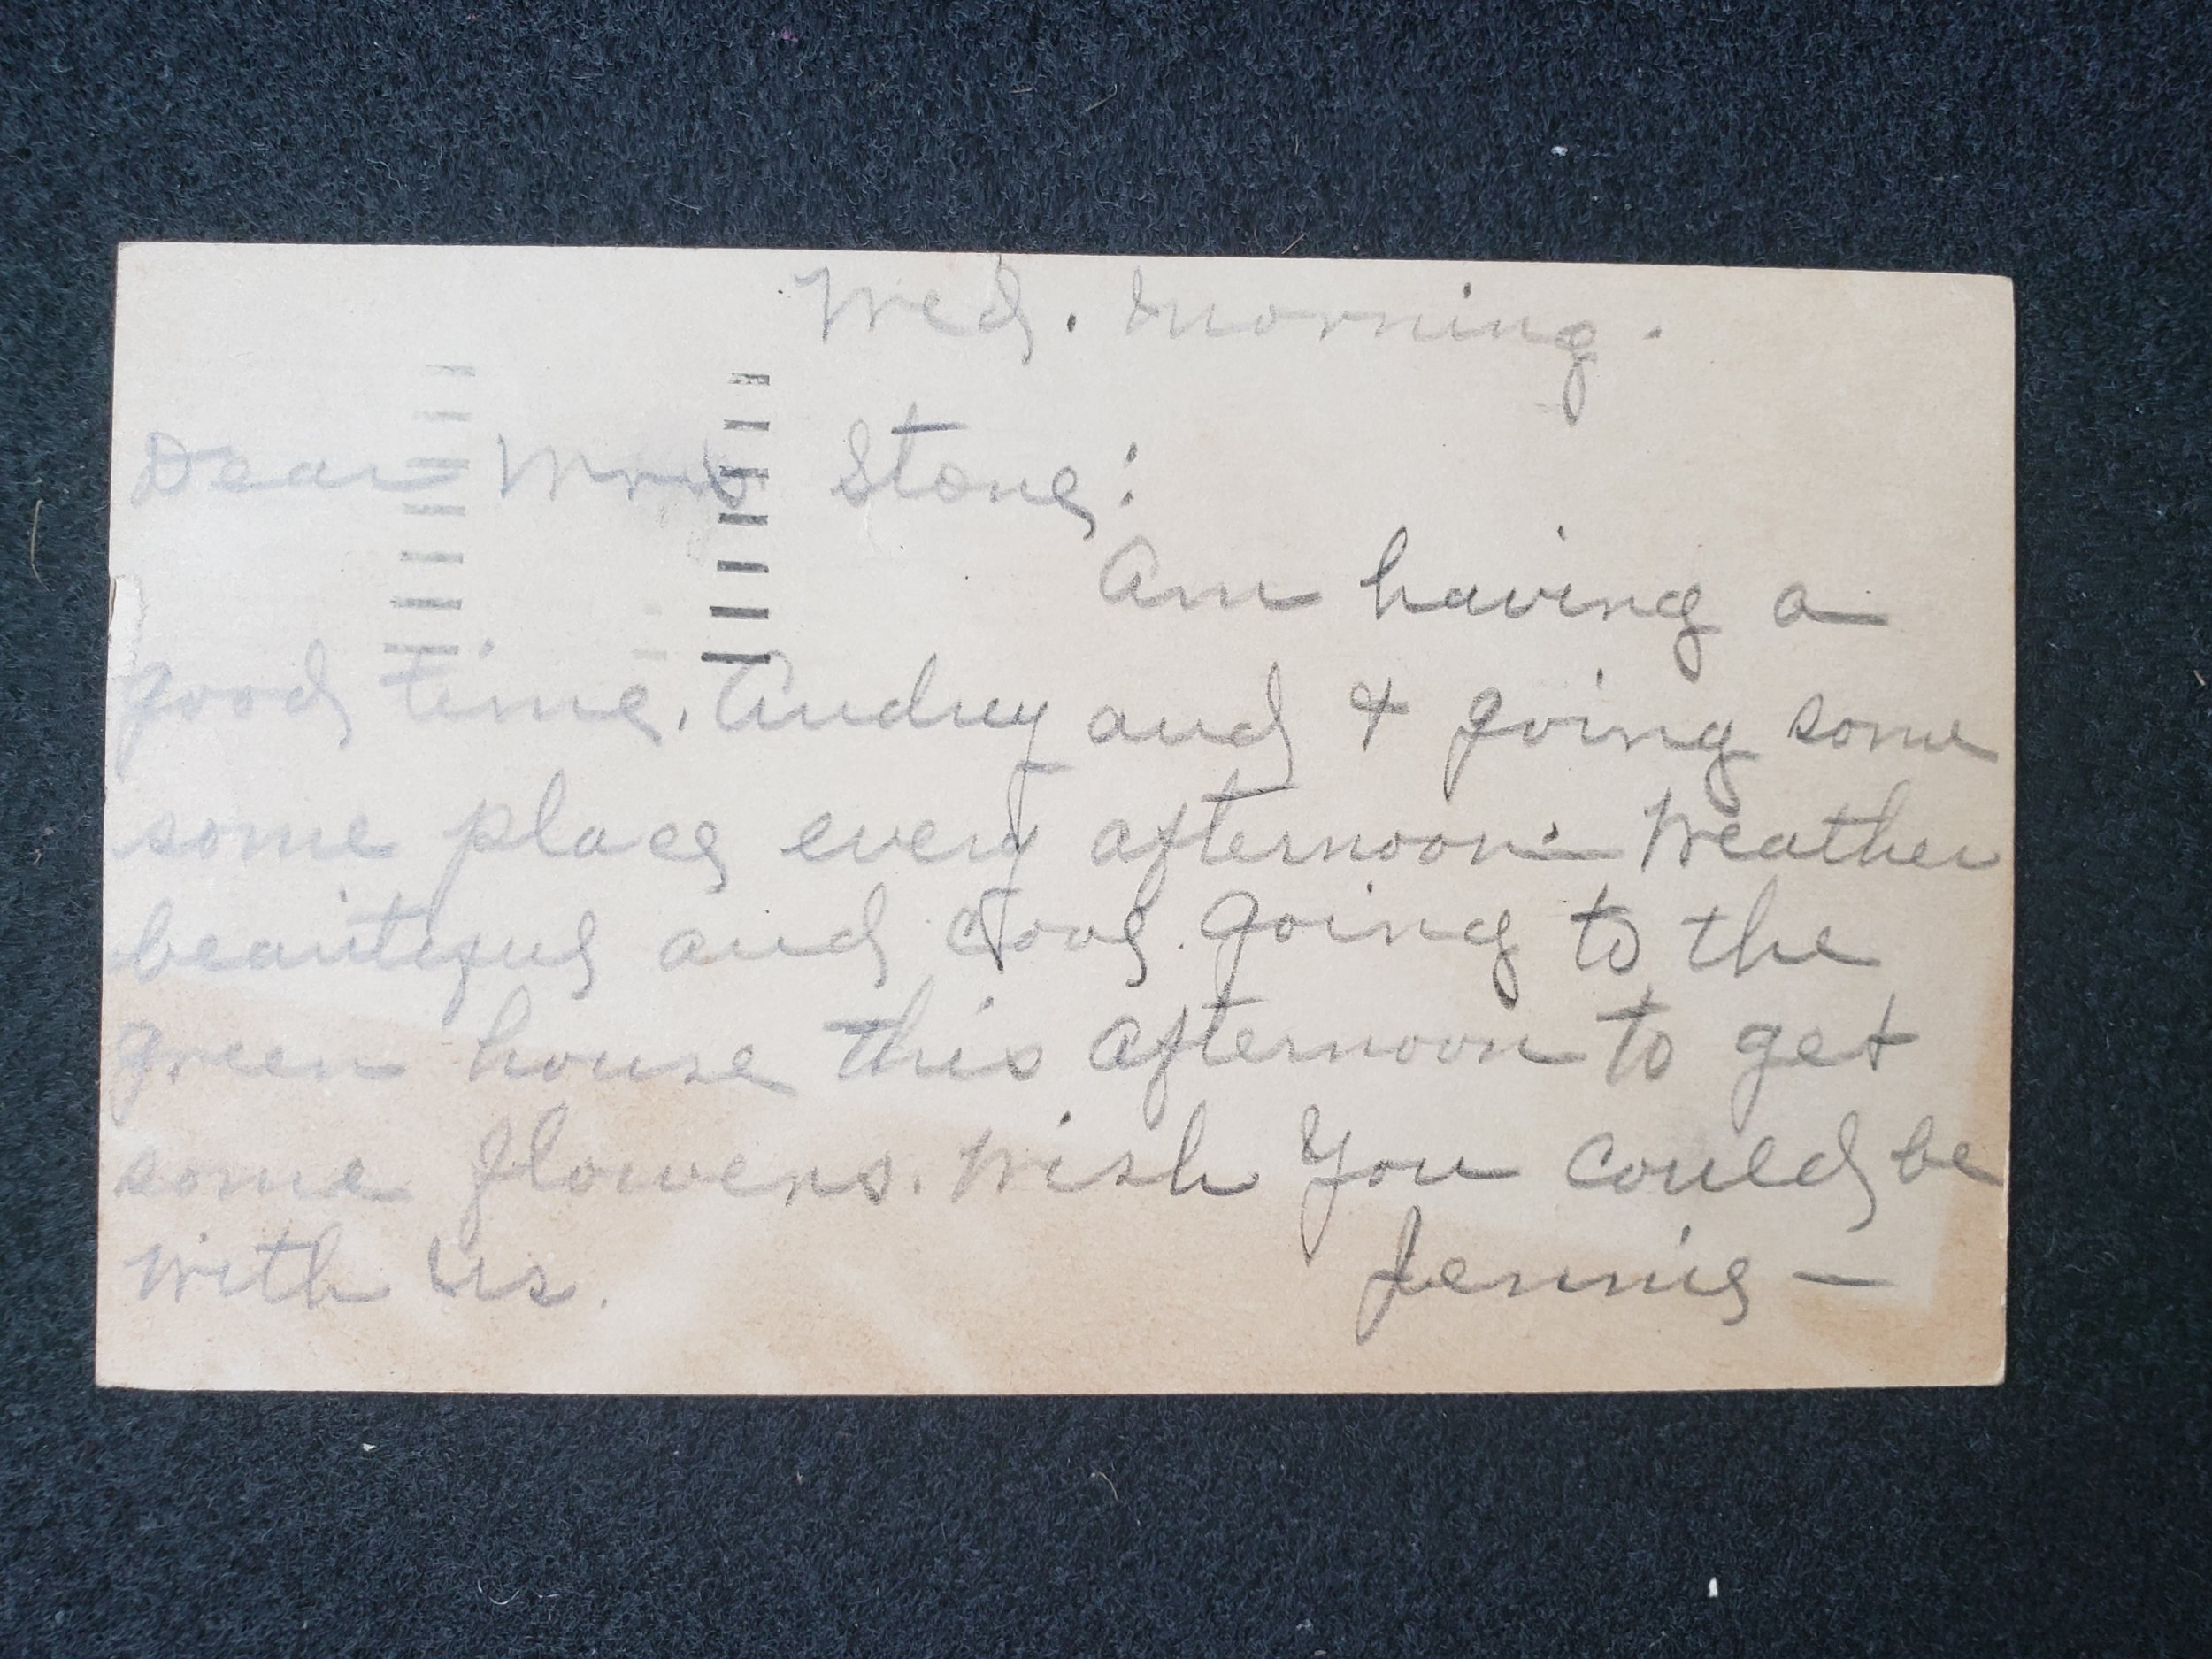 Wed. morning.
Dear Mrs Stone:
Am having a
good time. Audrey and I going some
some place every afternoon. Weather
beautiful and cool. Going to the
green house this afternoon to get
some flowers. Wish you could be
with us. Jennie —